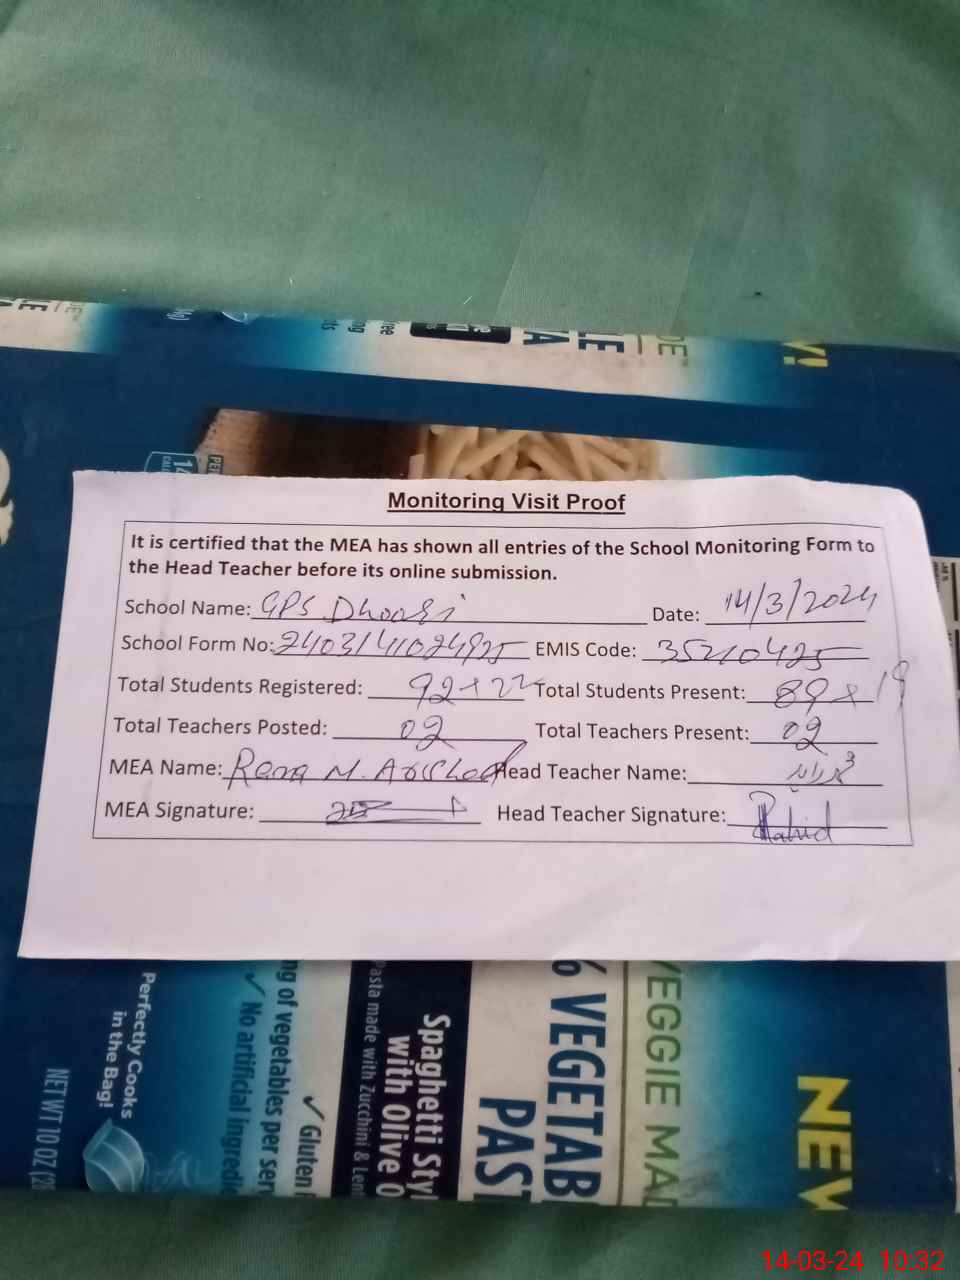 Monitoring Visit Proof
It is certified that the MEA has shown all entries of the School Monitoring Form to
the Head Teacher before its online submission.
School Name: GPS Dhoori Date: 14/3/2024
School Form No: EMIS Code: 35210425
Total Students Registered: 92+22 Total Students Present: 89+19
Total Teachers Posted: 02 Total Teachers Present: 02
MEA Name: Rana M. Arshad Head Teacher Name:
MEA Signature: Head Teacher Signature: Rahid
Perfectly Cooks
in the Bag!
NET WT 10 OZ
ng of vegetables per serv
✓ No artificial ingredie
✓ Gluten
Spaghetti Styl
with Olive O
Pasta made with Zucchini & Len
VEGETAB
PAST
VEGGIE MA
NEW
14-03-24 10:32